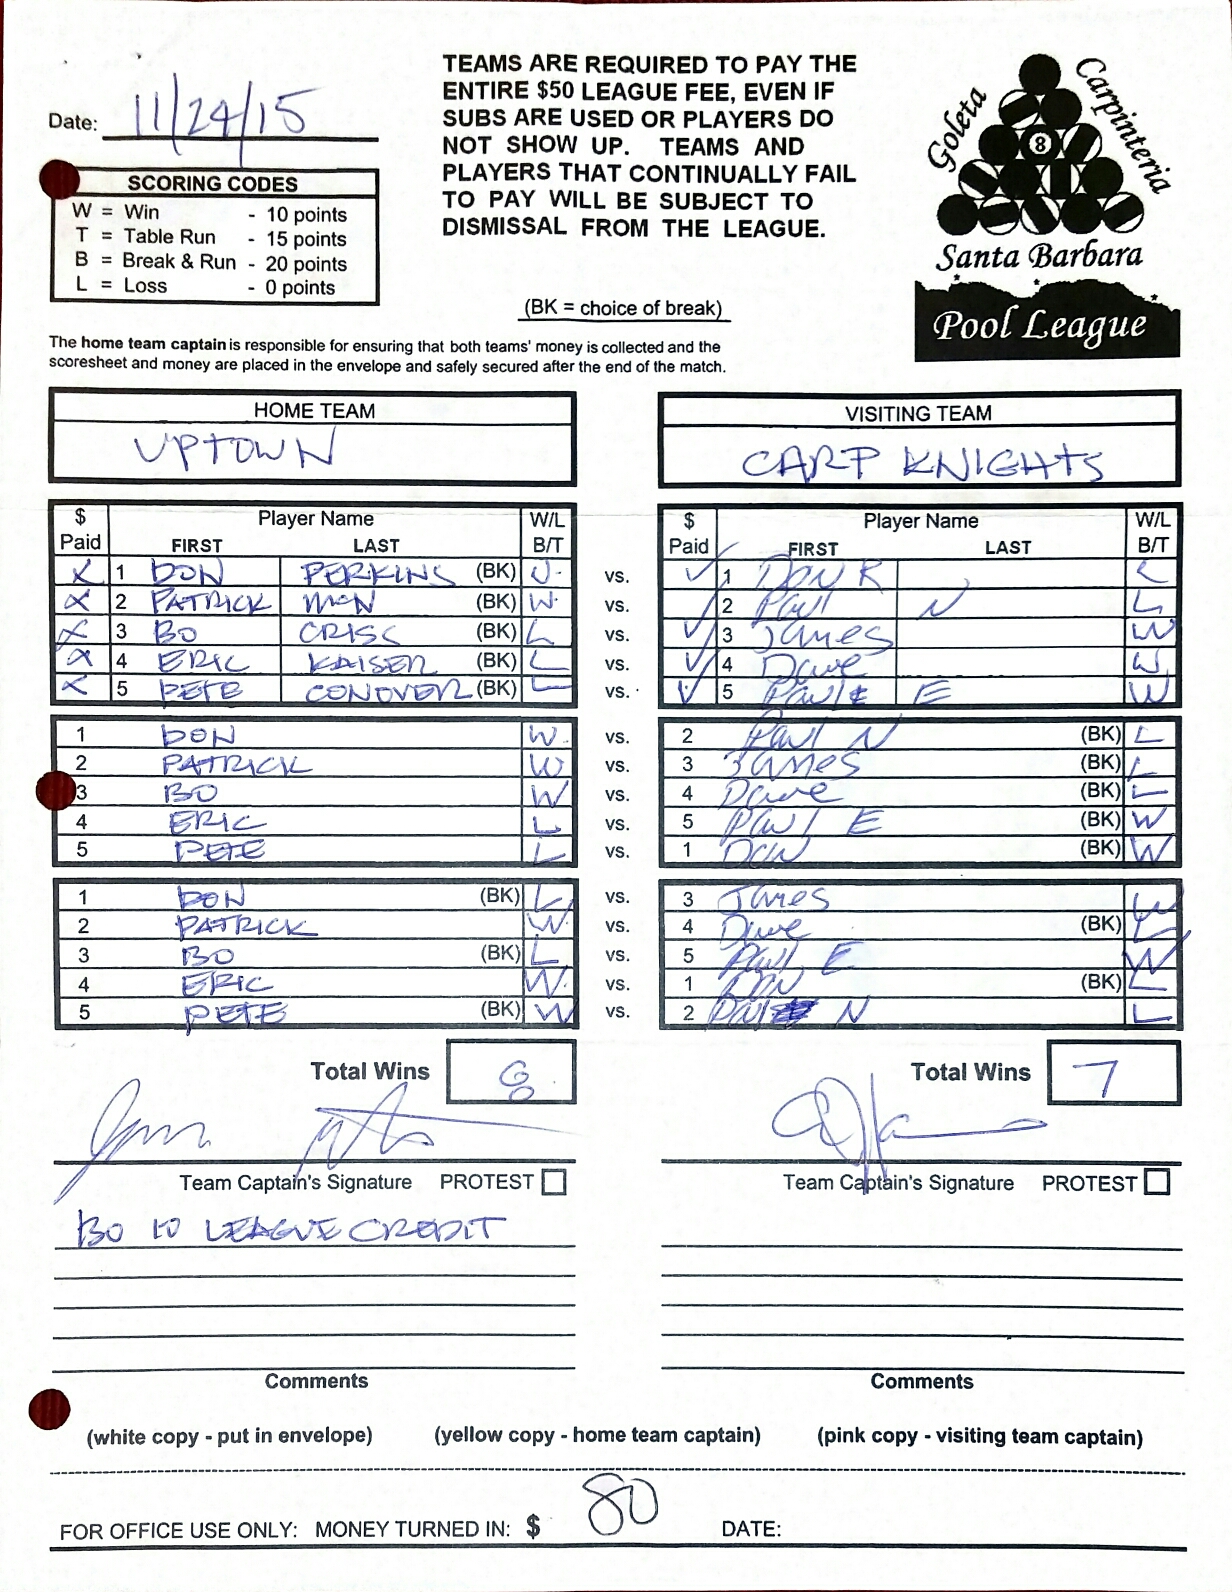 Date: 11/24/15
TEAMS ARE REQUIRED TO PAY THE
ENTIRE $50 LEAGUE FEE, EVEN IF
SUBS ARE USED OR PLAYERS DO
NOT SHOW UP. TEAMS AND
PLAYERS THAT CONTINUALLY FAIL
TO PAY WILL BE SUBJECT TO
DISMISSAL FROM THE LEAGUE.
Goleta
Carpinteria
8
Santa Barbara
Pool League
SCORING CODES
W = Win - 10 points
T = Table Run - 15 points
B = Break & Run - 20 points
L = Loss - 0 points
(BK = choice of break)
The home team captain is responsible for ensuring that both teams' money is collected and the
scoresheet and money are placed in the envelope and safely secured after the end of the match.
HOME TEAM VISITING TEAM
UPTOWN CARP KNIGHTS
$ Player Name W/L $ Player Name W/L
Paid FIRST LAST B/T Paid FIRST LAST B/T
X 1 DON PERKINS (BK) vs. ✓ 1 DON R L
X 2 PATRICK (BK) W vs. ✓ 2 PAUL N L
X 3 BO CRISS (BK) L vs. ✓ 3 James W
X 4 ERIC KAISER (BK) L vs. ✓ 4 Dave W
X 5 PETE CONOVER (BK) L vs. ✓ 5 PAUL E W
1 DON W vs. 2 PAUL N (BK) L
2 PATRICK W vs. 3 JAMES (BK) L
3 BO W vs. 4 Dave (BK) L
4 ERIC L vs. 5 PAUL E (BK) W
5 PETE L vs. 1 DON (BK) W
1 DON (BK) L vs. 3 James W
2 PATRICK W vs. 4 Dave (BK) L
3 BO (BK) L vs. 5 PAUL E W
4 ERIC W vs. 1 DON (BK) L
5 PETE (BK) W vs. 2 N L
Total Wins 8 Total Wins 7
Team Captain's Signature PROTEST Team Captain's Signature PROTEST
BO 10 LEAGUE CREDIT
Comments Comments
(white copy - put in envelope) (yellow copy - home team captain) (pink copy - visiting team captain)
FOR OFFICE USE ONLY: MONEY TURNED IN: $ 80 DATE: